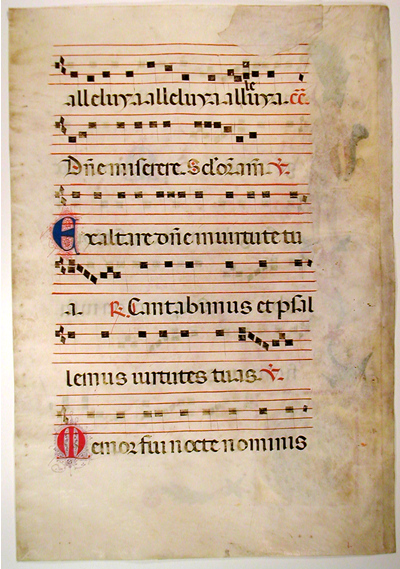 alleluya alleluya alluya. cc.
le
Dñe miserere. Sclor̃am̃ V.
Exaltare dñe in virtute tu
a. R. Cantabimus et psal
lemus virtutes tuas. V.
Memor fui nocte nominis